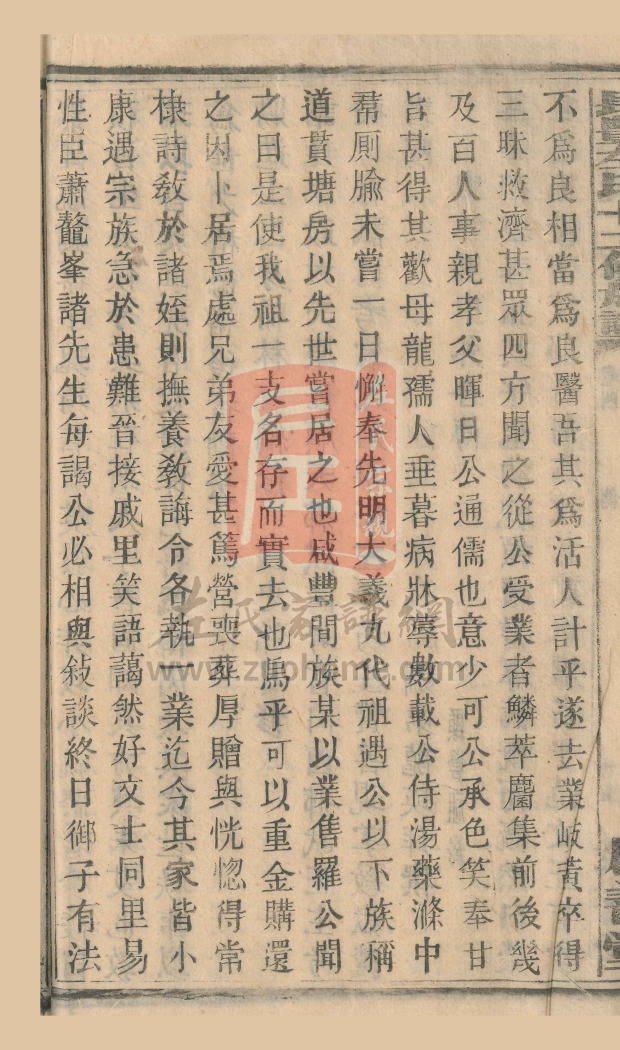 不爲良相當爲良醫吾其爲活人計乎遂去業岐黃卒得
三昧救濟甚眾四方聞之從公受業者鱗萃麕集前後幾
及百人事親孝父暉日公通儒也意少可公承色笑奉甘
旨甚得其歡母龍孺人垂暮病牀蓐數載公侍湯藥滌中
帬厠牏未嘗一日懈奉先明大義九代祖遇公以下族稱
道貫塘房以先世嘗居之也咸豐間族某以業售羅公聞
之曰是使我祖一支名存而實去也烏乎可以重金購還
之因卜居焉處兄弟友愛甚篤營喪葬厚贈與恍惚得常
棣詩敎於諸姪則撫養敎誨令各執一業迄今其家皆小
康遇宗族急於患難晉接戚里笑語藹然好文士同里易
性臣蕭鼇峯諸先生每謁公必相與敍談終日御子有法
左氏家譜網
www.zuohome.com